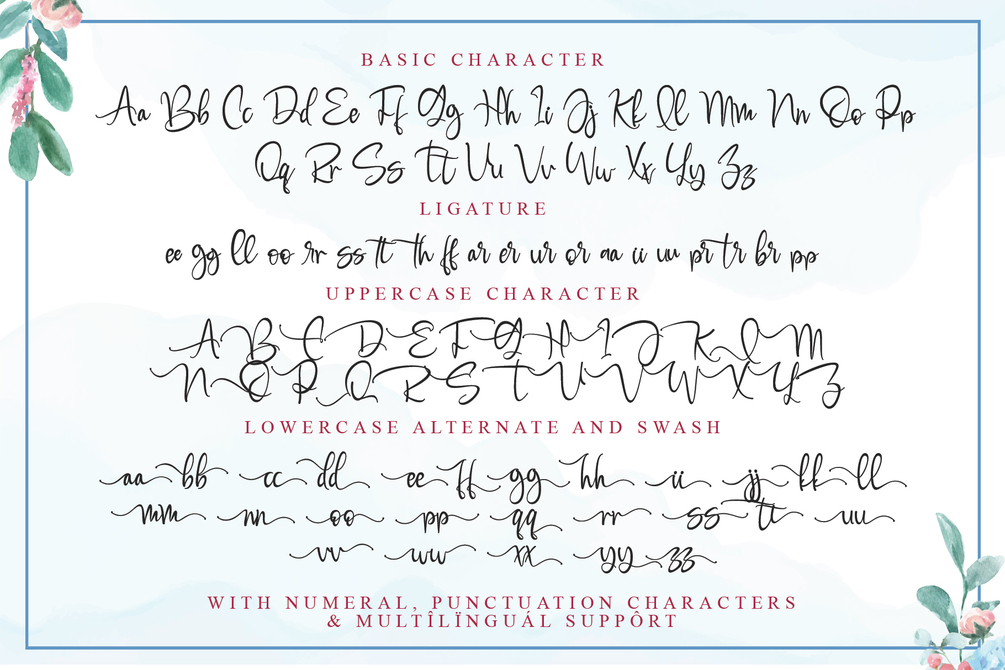 BASIC CHARACTER
Aa Bb Cc Dd Ee Ff Gg Hh Ii Jj Kk Ll Mm Nn Oo Pp
Qq Rr Ss Tt Uu Vv Ww Xx Yy Zz
LIGATURE
ee gg ll oo rr ss tt th ff ar er ur or aa ii uu pr tr br pp
UPPERCASE CHARACTER
A B C D E F G H I J K L M
N O P Q R S T U V W X Y Z
LOWERCASE ALTERNATE AND SWASH
aa bb cc dd ee ff gg hh ii jj kk ll
mm nn oo pp qq rr ss tt uu
vv ww xx yy zz
WITH NUMERAL, PUNCTUATION CHARACTERS
& MULTÎLÏNGUÁL SUPPÔRT